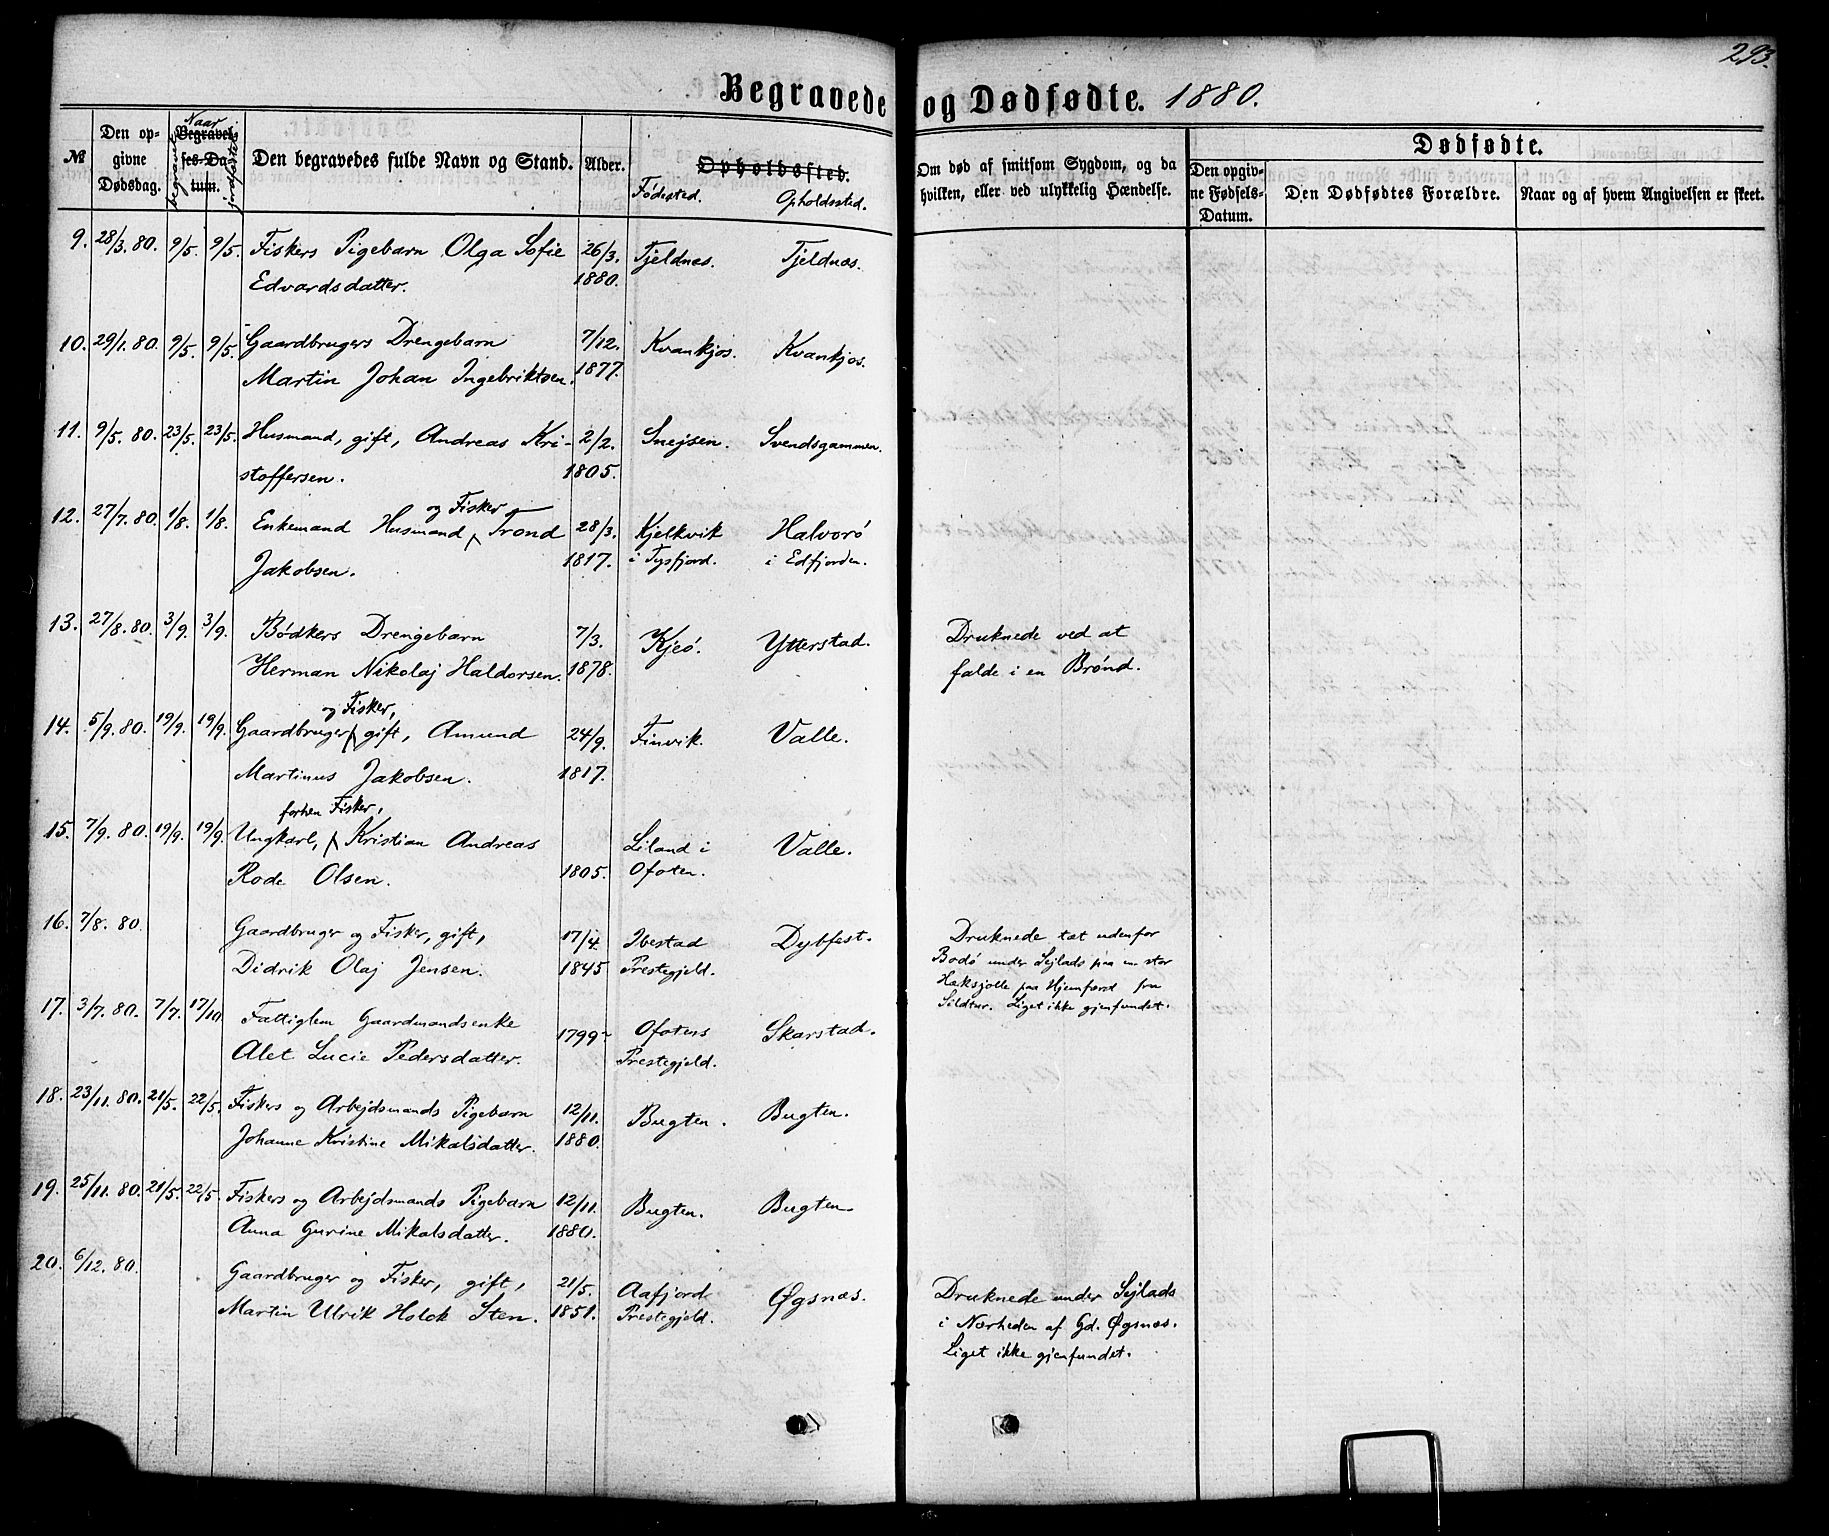 293.
Begravede og Dødfødte. 1880.
№ | Den opgivne Dødsdag. | Naar Begravelses-Datum. begravet jordfæstet | Den begravedes fulde Navn og Stand. | Alder. | Opholdssted. Fødested. Opholdssted. | Om død af smitsom Sygdom, og da hvilken, eller ved ulykkelig Hændelse. | Dødfødte. | Den opgivne Fødsels-Datum. | Den Dødfødtes Forældre. | Naar og af hvem Angivelsen er skeet.
9. 28/3. 80. 9/5. 9/5. Fiskers Pigebarn Olga Sofie 26/3. Tjeldnæs. Tjeldnæs.
Edvardsdatter. 1880.
10. 29/1. 80. 9/5. 9/5. Gaardbrugers Drengebarn 7/12. Kvankjos. Kvankjos.
Martin Johan Ingebriktsen. 1877.
11. 9/5. 80. 23/5. 23/5. Husmand, gift, Andreas Kri- 2/2. Snejsen. Svendsgammen.
stoffersen. 1805.
og Fisker
12. 27/7. 80. 1/8. 1/8. Enkemand Husmand Trond 28/3. Kjelkvik Halvorö
Jakobsen. 1817. i Tysfjord. i Edfjorden.
13. 27/8. 80. 3/9. 3/9. Bödkers Drengebarn 7/3. Kjeö. Ytterstad. Druknede ved at
Herman Nikolaj Haldorsen. 1878. falde i en Brönd.
og Fisker,
14. 5/9. 80. 19/9. 19/9. Gaardbruger gift, Amund 24/9. Finvik. Valle.
Martinus Jakobsen. 1817.
forhen Fisker,
15. 7/9. 80. 19/9. 19/9. Ungkarl, Kristian Andreas Liland i Valle.
Rode Olsen. 1805. Ofoten.
16. 7/8. 80. Gaardbruger og Fisker, gift, 17/4. Ibestad Dybfest. Druknede tæt udenfor
Didrik Olaj Jensen. 1845 Prestegjeld. Bodö under Sejlads paa en stor
Hæksjolle paa Hjemfærd fra
Sildtur. Liget ikke gjenfundet.
17. 3/7. 80. 7/7. 17/10 Fattiglem Gaardmandsenke 1799 Ofotens Skarstad.
Alet Lucie Pedersdatter. Prestegjeld.
18. 23/11. 80. 21/5. 22/5. Fiskers og Arbejdsmands Pigebarn 12/11. Bugten. Bugten.
Johanne Kristine Mikalsdatter. 1880.
19. 25/11. 80. 21/5. 22/5. Fiskers og Arbejdsmands Pigebarn 12/11. Bugten. Bugten.
Anna Gurine Mikalsdatter. 1880.
20. 6/12. 80. Gaardbruger og Fisker, gift, 21/5. Aafjord Øgsnæs. Druknede under Sejlads
Martin Ulrik Holck Sten. 1851. Prestegjeld. i Nærheden af Gd. Øgsnæs.
Liget ikke gjenfundet.